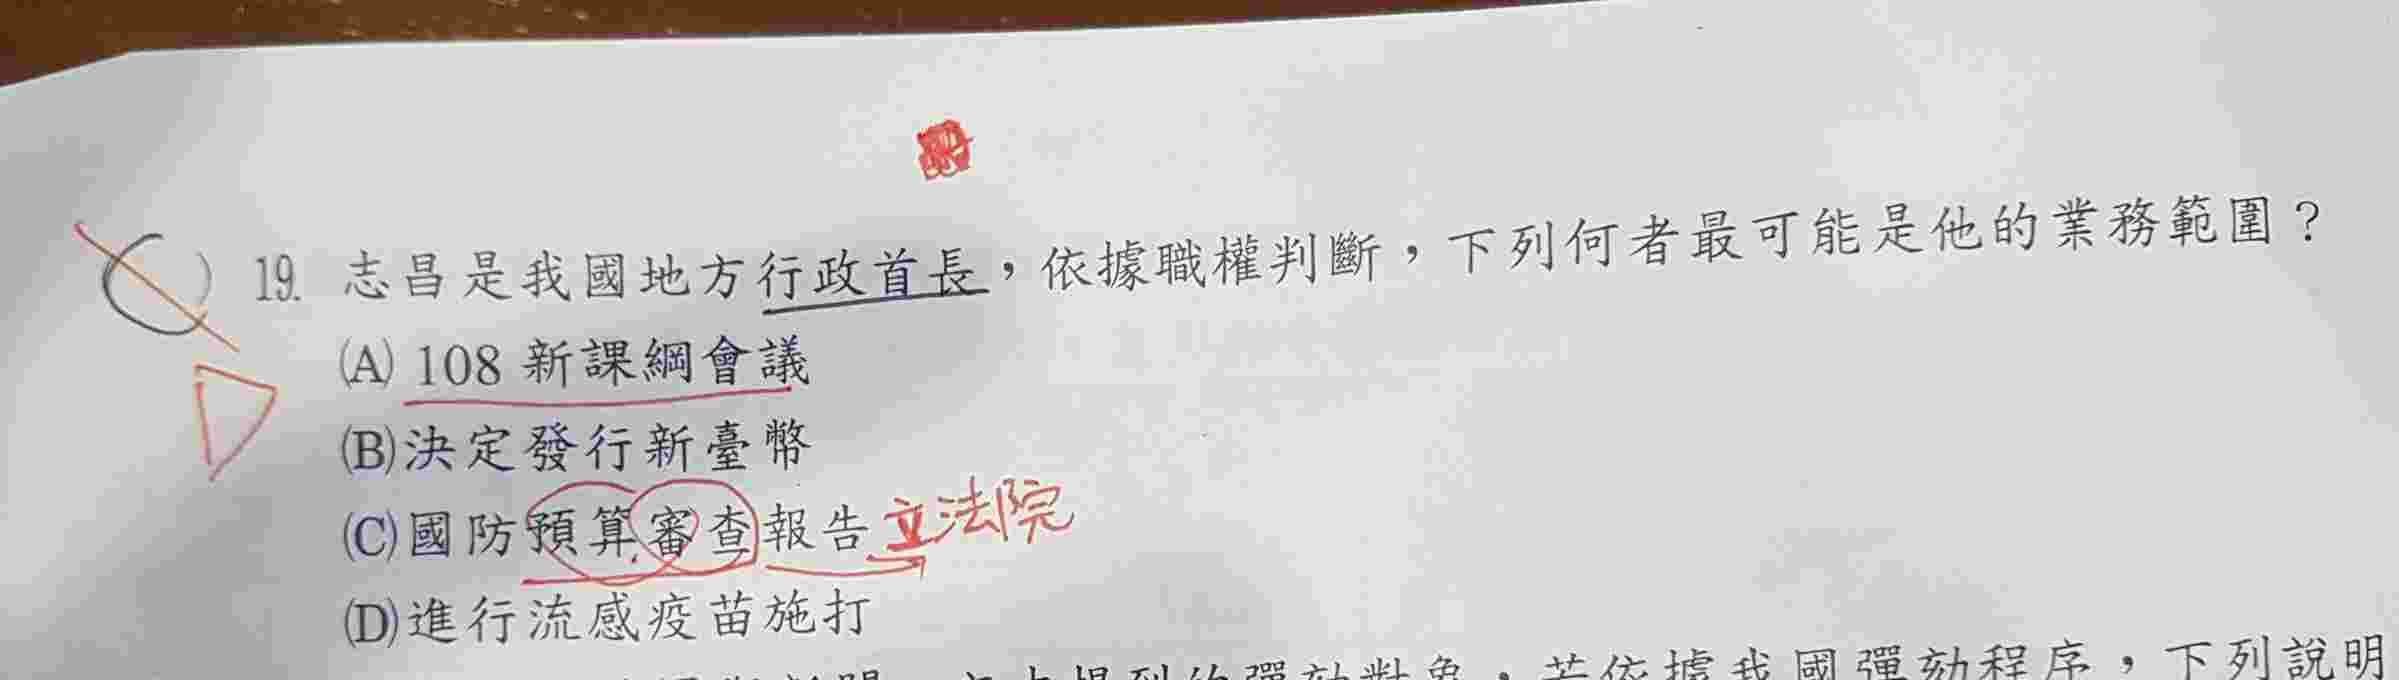 (C) 19. 志昌是我國地方行政首長，依據職權判斷，下列何者最可能是他的業務範圍？
D
(A) 108 新課綱會議
(B)決定發行新臺幣
(C)國防預算審查報告 立法院
(D)進行流感疫苗施打
彈劾對象，若依據我國彈劾程序，下列說明